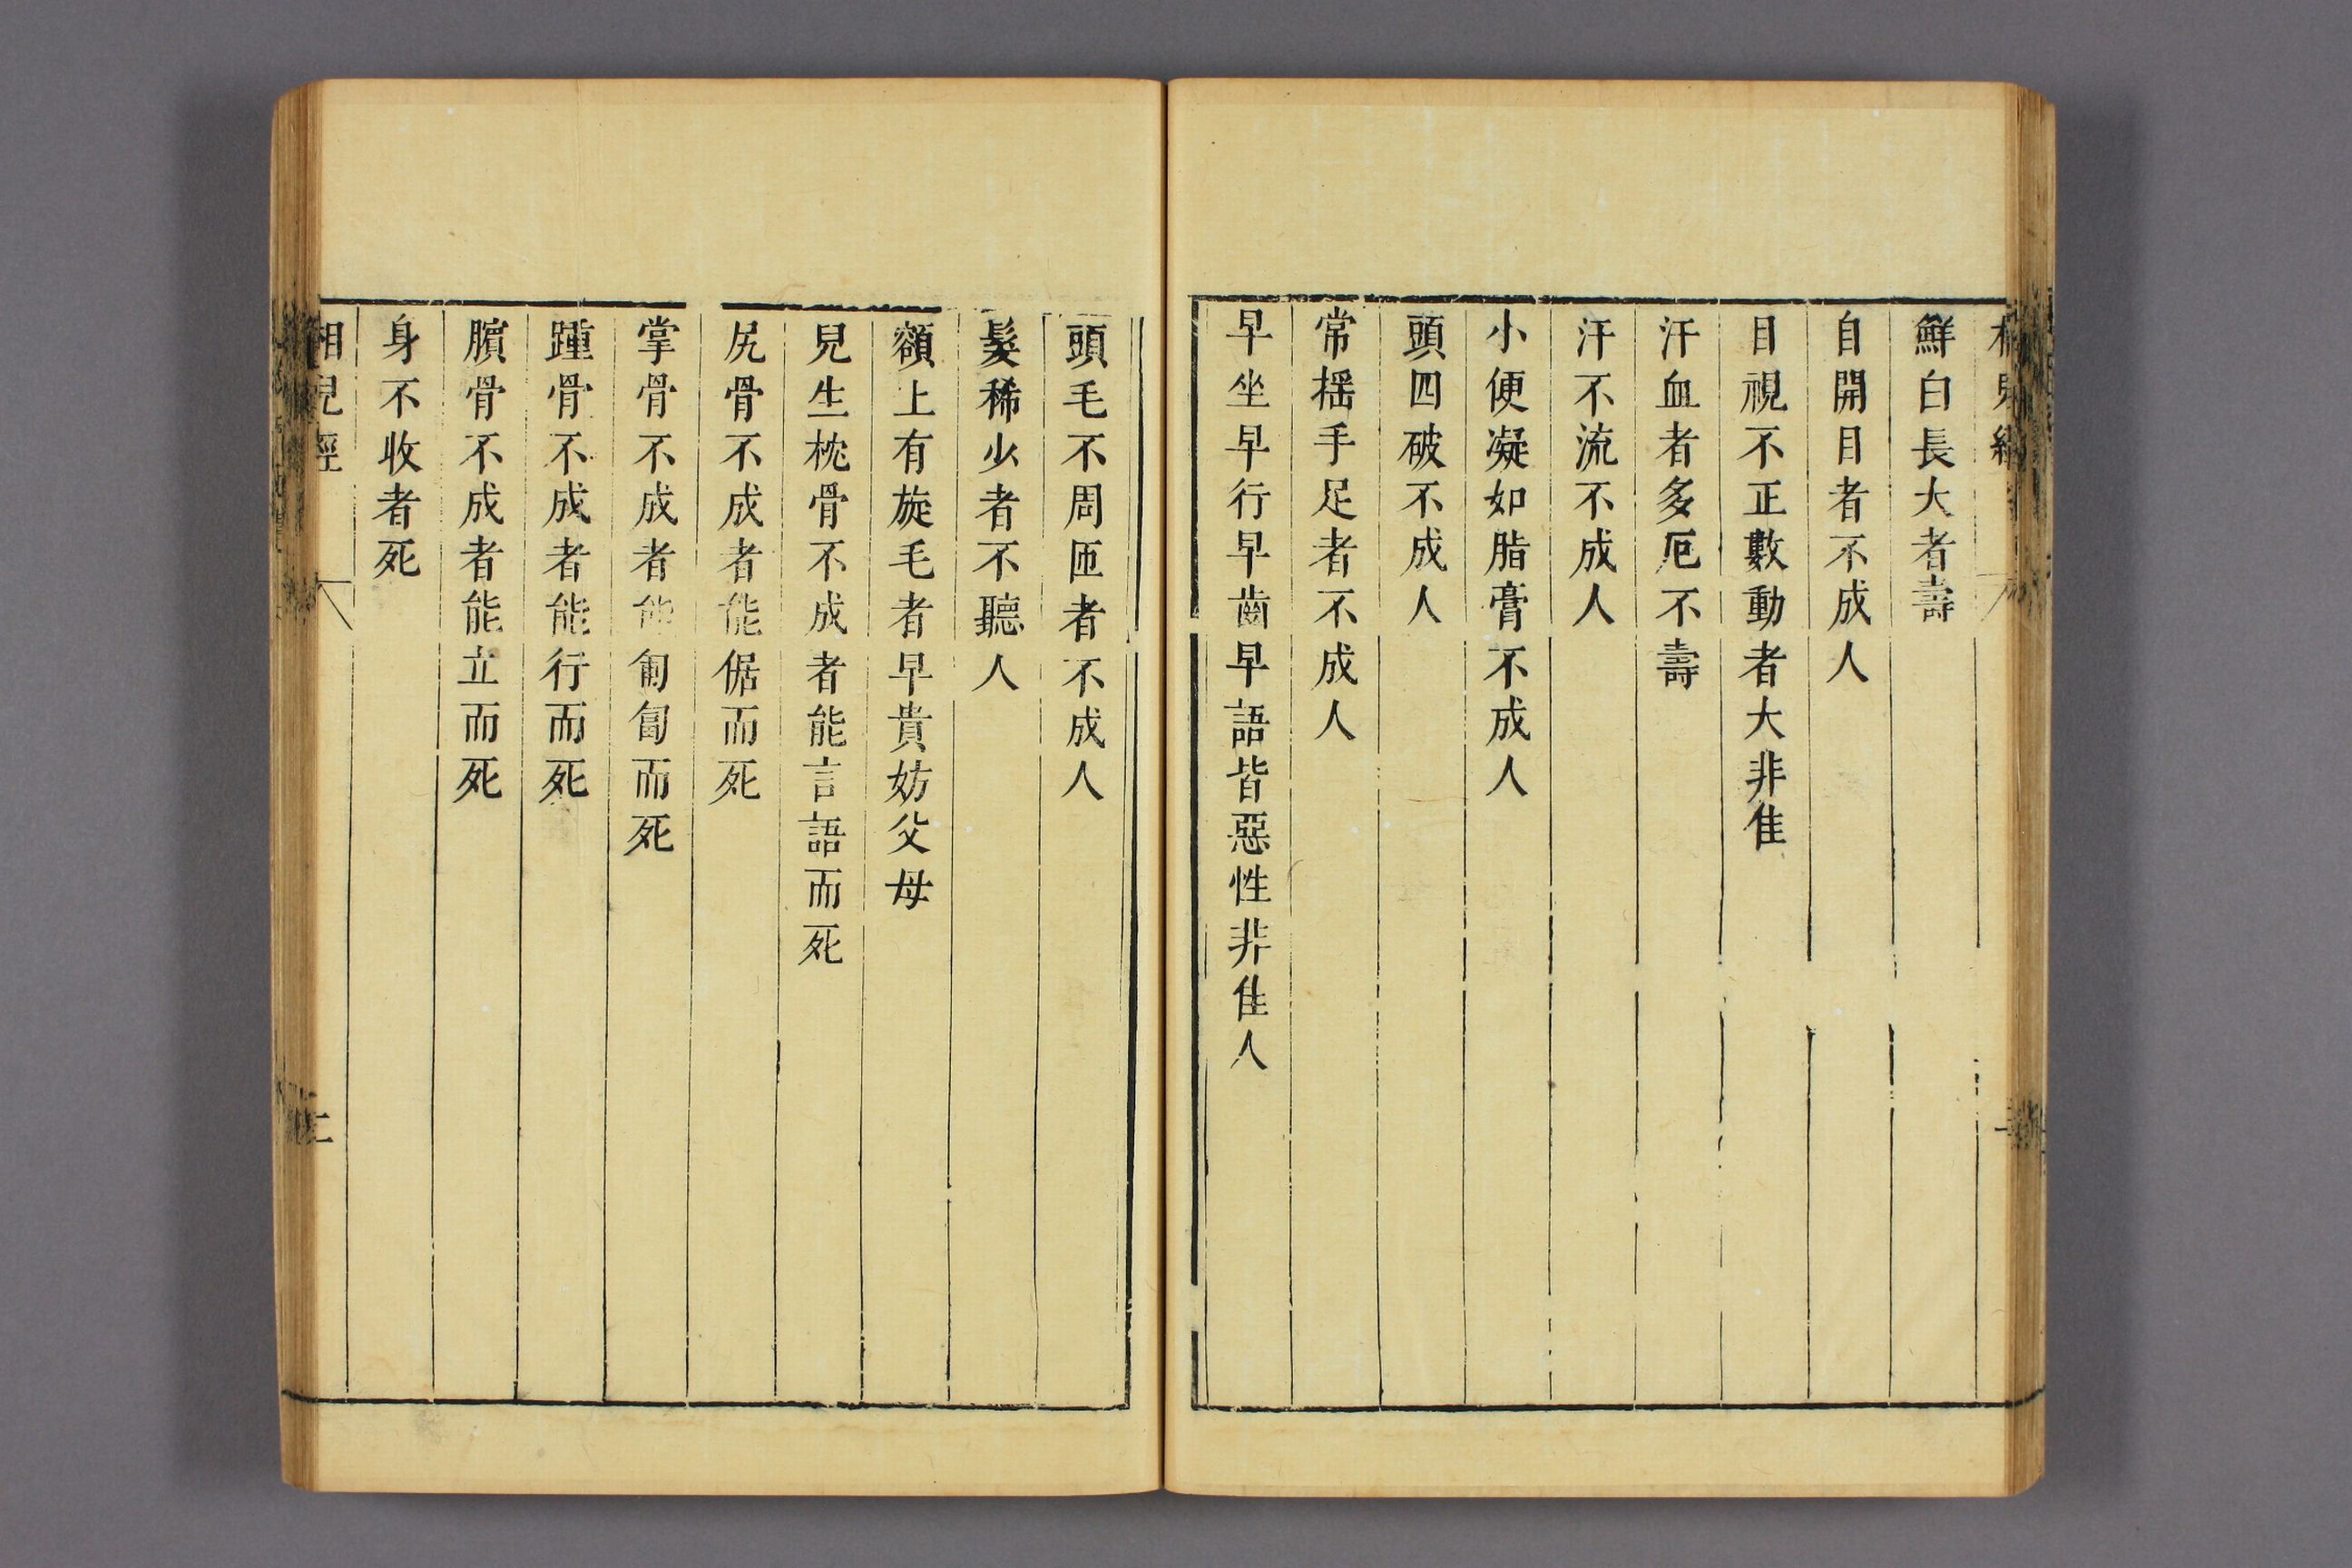 鮮白長大者壽
自開目者不成人
目視不正數動者大非佳
汗血者多厄不壽
汗不流不成人
小便凝如脂膏不成人
頭四破不成人
常揺手足者不成人
早坐早行早齒早語皆惡性非佳人
頭毛不周匝者不成人
髮稀少者不聽人
額上有旋毛者早貴妨父母
兒生枕骨不成者能言語而死
尻骨不成者能倨而死
掌骨不成者能匍匐而死
踵骨不成者能行而死
臏骨不成者能立而死
身不收者死
相兒經